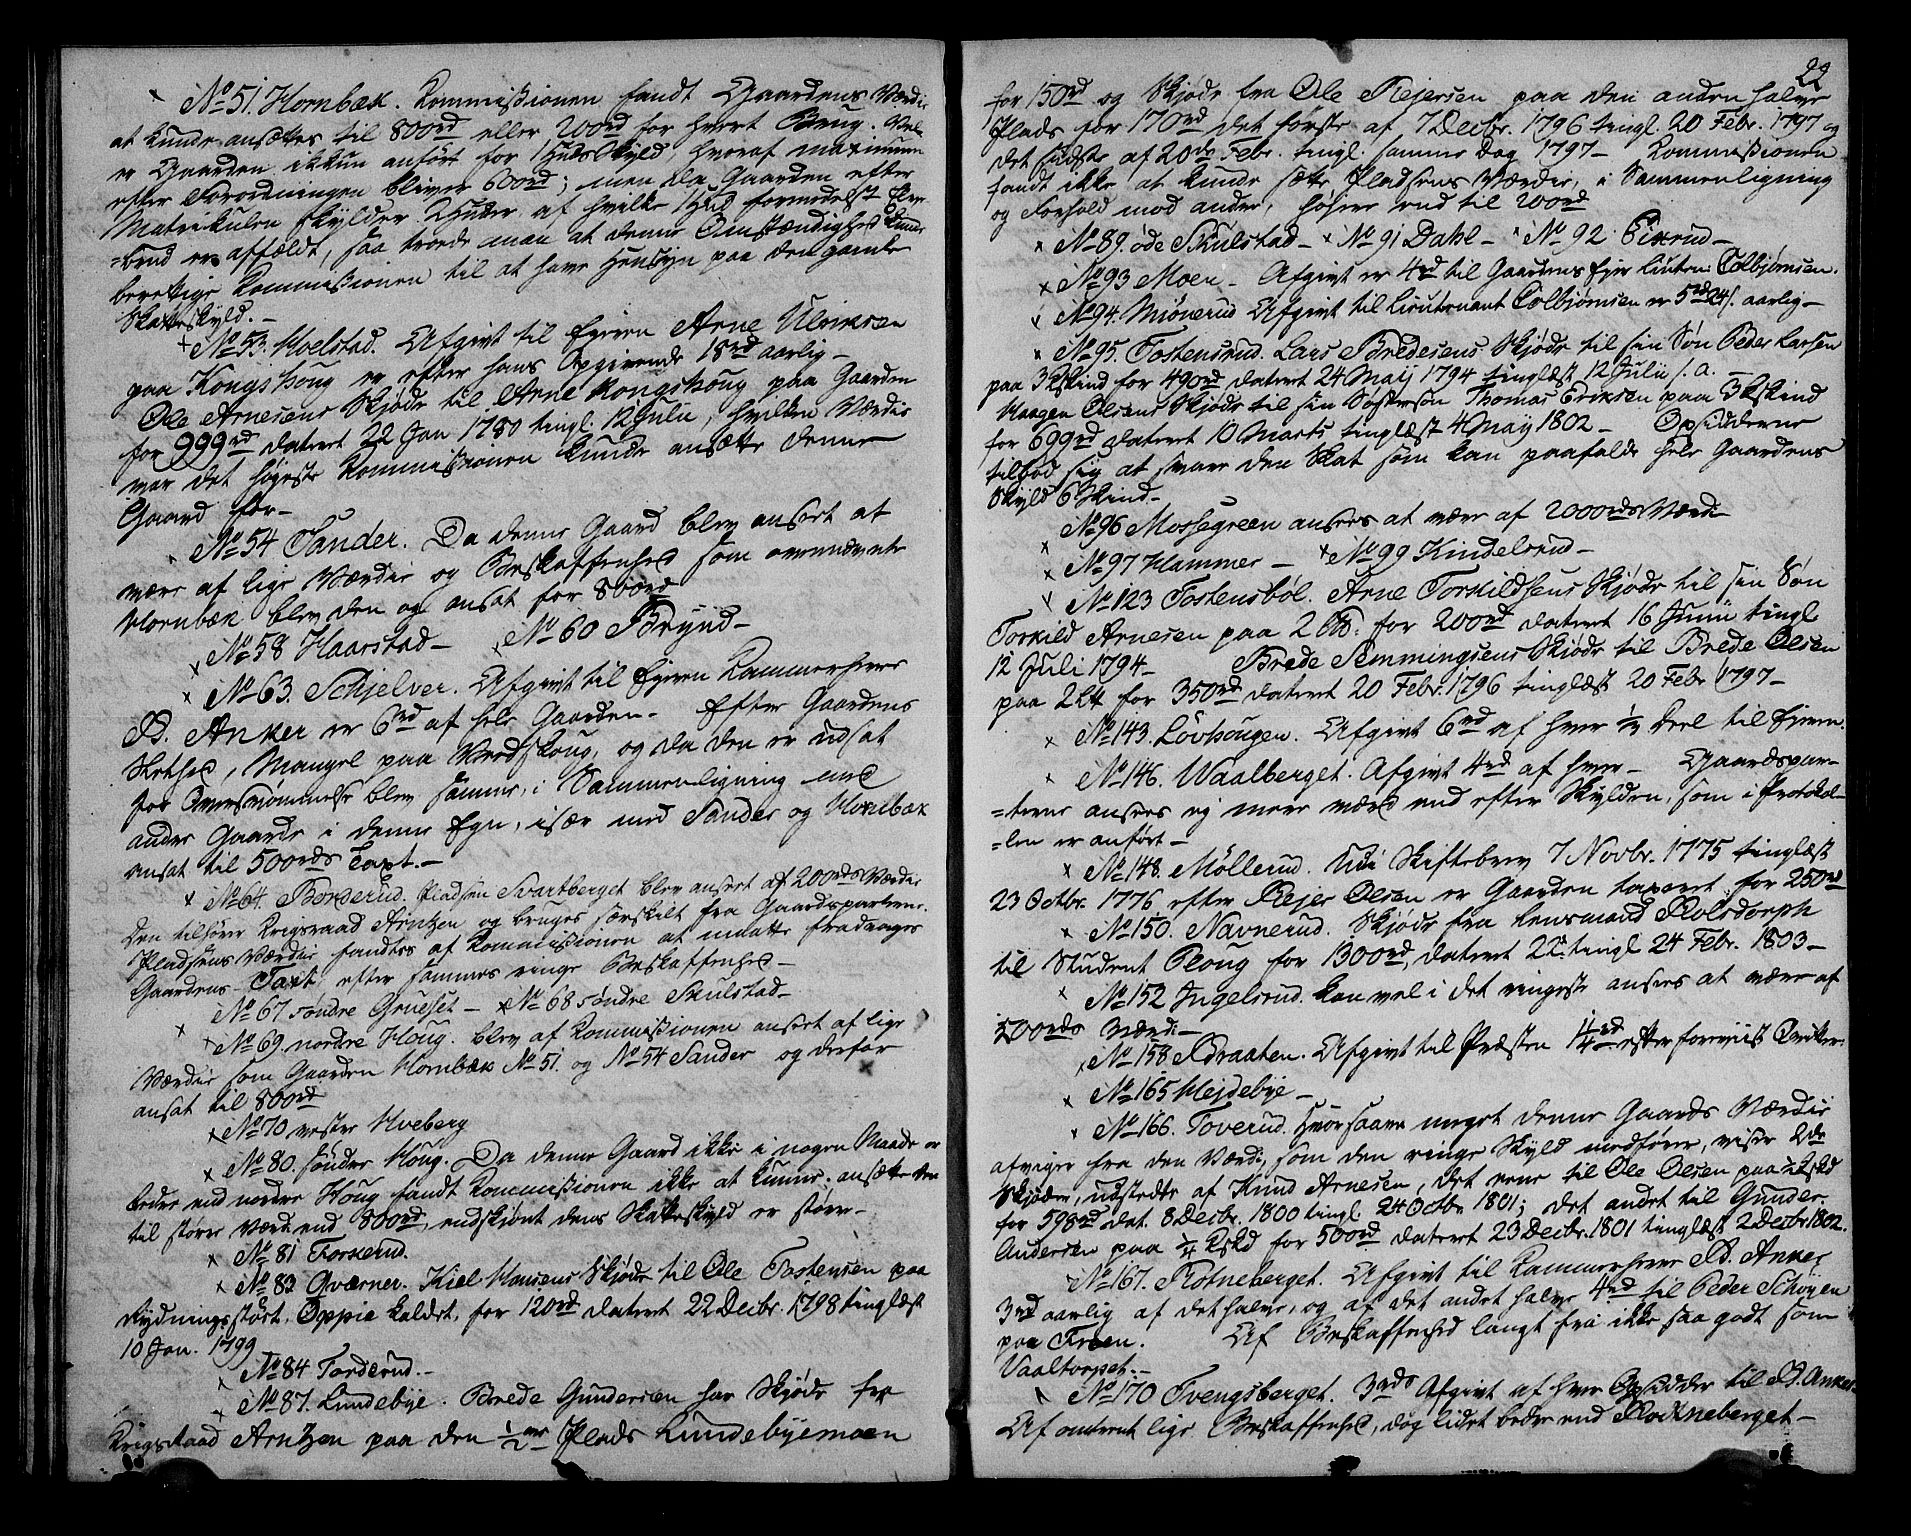 No 51. Hornbæk. Kommissionen fandt Gaardens Værdie
at kunde ansættes til 800rd eller 200rd for hvert Brug. Vel
er Gaarden ikkun anført for 1 Huds Skyld, hvoraf maximum
efter Forordningen bliver 600rd; men da Gaarden efter
Matrikulen skylder 2 Huder, af hvilke 1 Hud formodelst Elve-
=brud er affældt, saa troede man at denne Omstændighed kunde
berettige Kommissionen til at have Hensyn paa den gamle
Skatteskyld.-
No 53. Hvelstad. Afgivt til Eyeren Arne Ulriksen
paa Kongshoug er efter hans Opgivende 18rd aarlig-
Ole Arnesens Skjøde til Arne Kongshoug paa Gaarden
for 999rd dateret 22 Jan 1780 tingl. 12 Julii, hvilken Værdie
var det høieste Kommissionen kunde ansætte denne
Gaard for-
No 54 Sander. Da denne Gaard blev anseet at
være af lige Værdie og Beskaffenhed som ovennævnte
Hornbæk blev den og ansat for 800rd
No 58 Haarstad- No 60 Brynd-
No 63. Schjelver. Afgivt til Eyeren Kammerherre
B. Anker er 6rd af hele Gaarden- Efter Gaardens
Slethed, Mangel paa Vedskoug, og da den er udsat
for Oversvømmelse blev samme, i Sammenligning med
andre Gaarde i denne Egn, især med Sander og Hornbæk
ansat til 500rds Taxt.-
No 64. Børderud. Pladsen Svartberget blev anseet af 200rds Værdie
Den tilhører Krigsraad Arntzen og bruges særskilt fra Gaardsparterne.
Pladsens Værdie fandtes af Kommissionen at maatte fradrages
Gaardens Taxt, efter sammes ringe Beskaffenhed-
No 67 søndre Grueset - No 68 søndre Skulstad-
No 69. nordre Houg. blev af Kommissionen anseet af lige
Værdie som Gaarden Hornbæk No 51. og No 54 Sander og derfor
ansat til 800rd
No 70 vestre Hveberg
No 80. søndre Houg. Da denne Gaard ikke i nogen Maade er
bedre end nordre Houg fandt Kommissionen ikke at kunne ansætte den
til større Værdie end 800rd, endskjønt dens Skatteskyld er større-
No 81 Torkerud.
No 83 Gværner. Kiel Hansens Skjøde til Ole Tostensen paa
Rydningsstøet, Oppie kaldet, for 120rd dateret 22 Decbr. 1798 tinglæst
10 Jan. 1799
No 84 Torderud.-
No 87. Lundebye. Brede Gundersen har Skjøde fra
Krigsraad Arntzen paa den 1/2ve Plads Lundebyemoen
22
for 150rd og Skjøde fra Ole Rejersen paa den anden halve
Plads for 170rd det første af 7 Decbr. 1796 tingl. 20 Febr. 1797 og
det sidste af 20de Febr. tingl. samme Dag 1797- Kommissionen
fandt ikke at kunde sætte Pladsens Værdie, i Sammenligning
og Forhold mod andre, høiere end til 200rd
No 89. øde Skulstad- No 91 Dahl- No 92 Eikrud-
No 93 Moen- Afgivt er 4rd til Gaardens Ejer Lieuten: Colbjørnsen.
No 94. Miønerud Afgivt til Lieutenant Colbjørnsen er 5rd 24s. aarlig-
No 95. Tostensrud. Lars Bredesens Skjøde til sin Søn Peder Larsen
paa 3 Skind for 490rd dateret 24 Maij 1794 tinglæst 12 Julii s. a. -
Haagen Olsens Skjøde til sin Søstersøn Thomas Eriksen paa 3 Skind
for 699rd dateret 10 Marts tinglæst 4 May 1802- Opsidderne
tilbød sig at svare den Skat som kan paafalde hele Gaardens
Skyld 6 Skind-
No 96 Mossegreen ansees at være af 2000rds Værdie
No 97 Hammer - No 99 Kindelsrud-
No 123 Tostensbøl. Arne Torkildsens Skjøde til sin Søn
Torkild Arnesen paa 2 for 200rd dateret 16 Junii tingl.
12 Juli 1794- Brede Simmingsens Skjøde til Brede Olsen
paa 2 for 350rd dateret 20 Febr. 1796 tinglæst 20 Febr 1797-
No 143. Løvhougen. Afgivt 6rd af hver 1/2 Deel til Eyeren.
No 146. Waalberget. Afgivt 4rd af hver- Gaardspar-
=terne ansees ej mere værd end efter Skylden, som i Protokol-
=len er anført-
No 148. Møllerud. Udi Skiftebrev 7 Novbr. 1775 tinglæst
23 Octbr. 1776 efter Rejer Olsen er Gaarden taxeret for 250rd
No 150. Navnerud. Skjøde fra Lensmand Rolsdorph
til Student Ploug for 1300rd, dateret 22 tingl 24 Febr. 1803-
No 152 Ingelsrud. kan vel i det ringeste ansees at være af
500rds Værdie-
No 158 Braaten. Afgivt til Præsten 1 1/4rd efter foreviist Qvitter.
No 165 Hejdebye-
No 166. Toverud. Hvor saare meget denne Gaards Værdie
afviger fra den Værdie, som den ringe Skyld medfører, viser 2de
Skjøder, udstedte af Knud Arnesen, det eene til Ole Olsen paa 1/4 Skd
for 598rd dat. 8 Decbr. 1800 tingl. 24 Octbr 1801; det andet til Gunder
Andersen paa 1/4 Skd for 500rd dateret 23 Decbr. 1801 tinglæst 2 Decbr 1802.
No 167. Rotneberget. Afgivt til Kammerherre B. Anker
3rd aarlig af det halve, og af det andet halve 4rd til Peder Schøyen
paa Froen. Af Beskaffenhed langt fra ikke saa godt som
Vaaltorpet.-
No 170 Tvengsberget. 3rds Afgivt af hver Opsidder til B. Anker
Af omtrent lige Beskaffenhed, dog lidet bedre end Rotneberget-